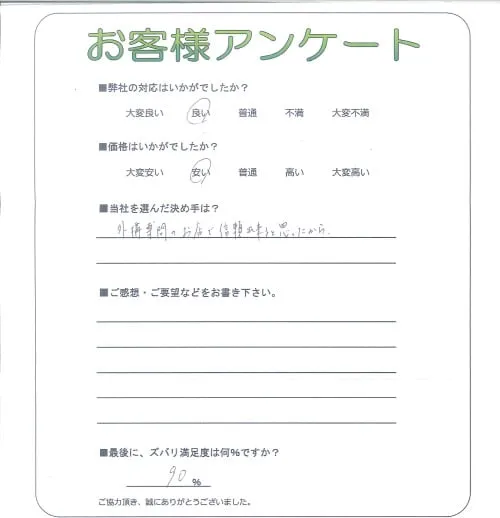 お客様アンケート
■弊社の対応はいかがでしたか？
大変良い 良い 普通 不満 大変不満
■価格はいかがでしたか？
大変安い 安い 普通 高い 大変高い
■当社を選んだ決め手は？
外構専門のお店で信頼出来ると思ったから。
■ご感想・ご要望などをお書き下さい。
■最後に、ズバリ満足度は何%ですか？
90 %
ご協力頂き、誠にありがとうございました。